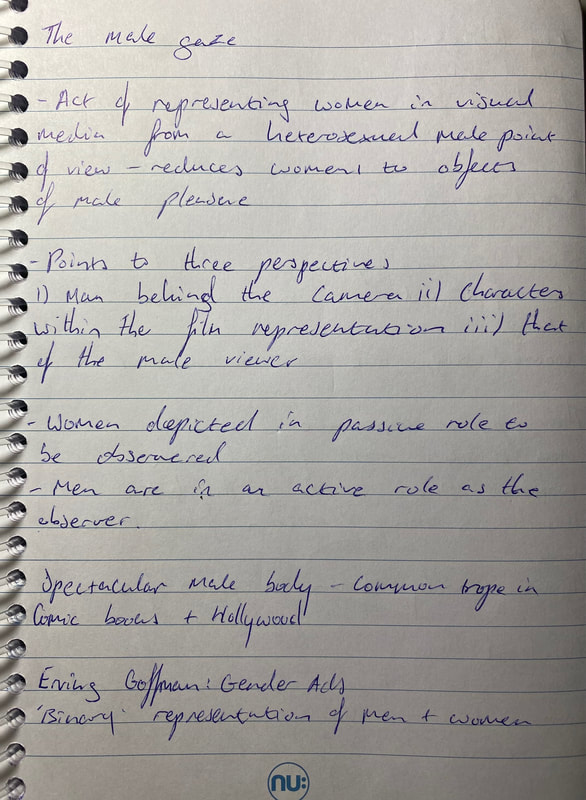 The male gaze
- Act of representing women in visual
media from a heterosexual male point
of view - reduces women to objects
of male pleasure
- Points to three perspectives
i) Man behind the camera ii) Characters
within the film representation iii) that
of the male viewer
- Women depicted in passive role to
be observered
- Men are in an active role as the
observer.
Spectacular male body - Common trope in
Comic books + Hollywood
Erving Goffman: Gender Ads
'Binary' representation of men + women
nu: